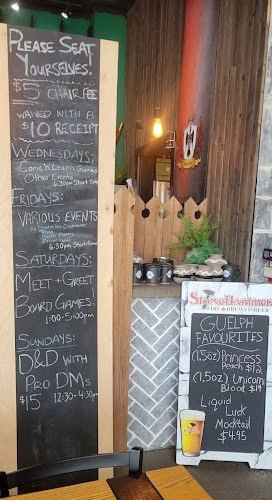 PLEASE SEAT
YOURSELVES.
$5 CHAIR FEE
WAVED WITH A
$10 RECEIPT
WEDNESDAYS:
Come N' Learn Games
Other Events
6:30pm Start Time
FRIDAYS:
VARIOUS EVENTS
6:30pm Start Time
SATURDAYS:
MEET + GREET
BOARD GAMES
1:00-5:00pm
SUNDAYS:
D&D WITH
PRO DMs
$15 12:30-4:30pm
StoneHammer
FIRE BREW
GUELPH
FAVOURITES
(1.5oz) Princess
Peach $12
(1.5oz) Unicorn
Blood $14
Liquid
Luck
Mocktail
$4.95